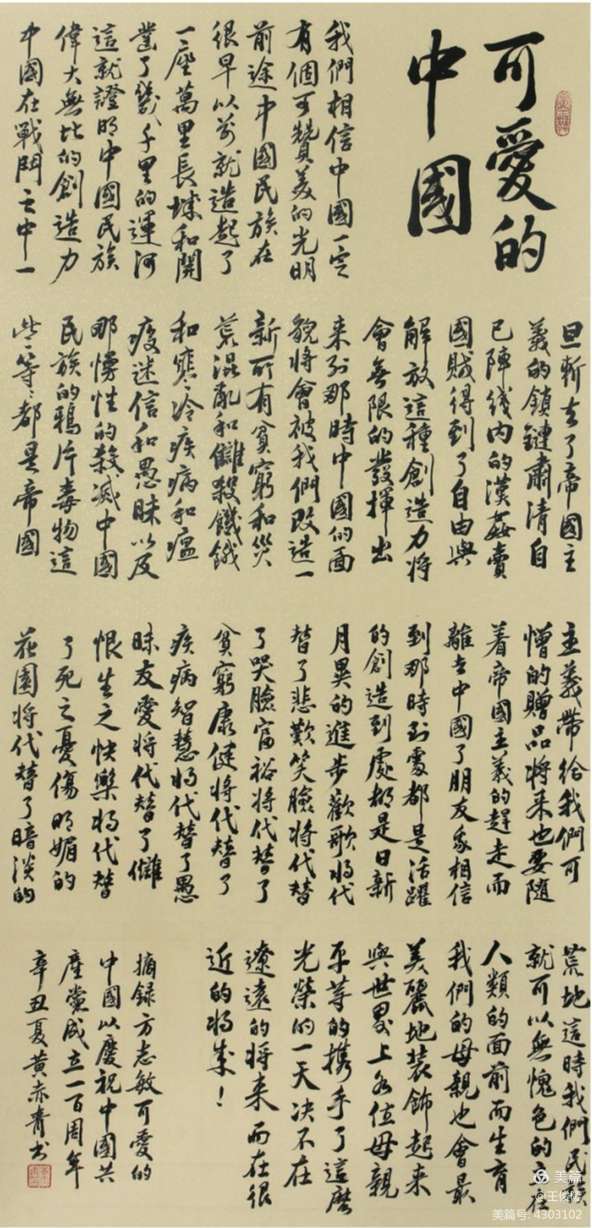 可愛的
中國
我們相信中國一定
有個可贊美的光明
前途中國民族在
很早以前就造起了
一座萬里長城和開
鑿了幾千里的運河
這就證明中國民族
偉大無比的創造力
中國在戰鬥之中一
旦斬去了帝國主
義的鎖鏈肅清自
己陣线內的漢姦賣
國賊得到了自由與
解放這種創造力將
會無限的發揮出
來到那時中國的面
貌將會被我們改造一
新所有貧窮和災
荒混亂和讎殺饑餓
和寒冷疾病和瘟
疫迷信和愚昧以及
那慢性的殺滅中國
民族的鴉片毒物這
些等等都是帝國
主義帶給我們可
憎的贈品將来也要隨
着帝國主義的趕走而
離去中國了朋友我相信
到那時到處都是活躍
的創造到處都是日新
月異的進步歡歌將代
替了悲歎笑臉將代替
了哭臉富裕將代替了
貧窮康健將代替了
疾病智慧將代替了愚
昧友愛將代替了讎
恨生之快樂將代替
了死之憂傷明媚的
花園將代替了暗淡的
荒地這時我們民族
就可以無愧色的立在
人類的面前而生育
我們的母親也會最
美麗地裝飾起來
與世界上各位母親
平等的携手了這麼
光榮的一天决不在
遼遠的將来而在很
近的將来！
摘録方志敏可愛的
中國以慶祝中國共
產黨成立一百周年
辛丑夏黄赤青书
美篇
美篇号: 4303102